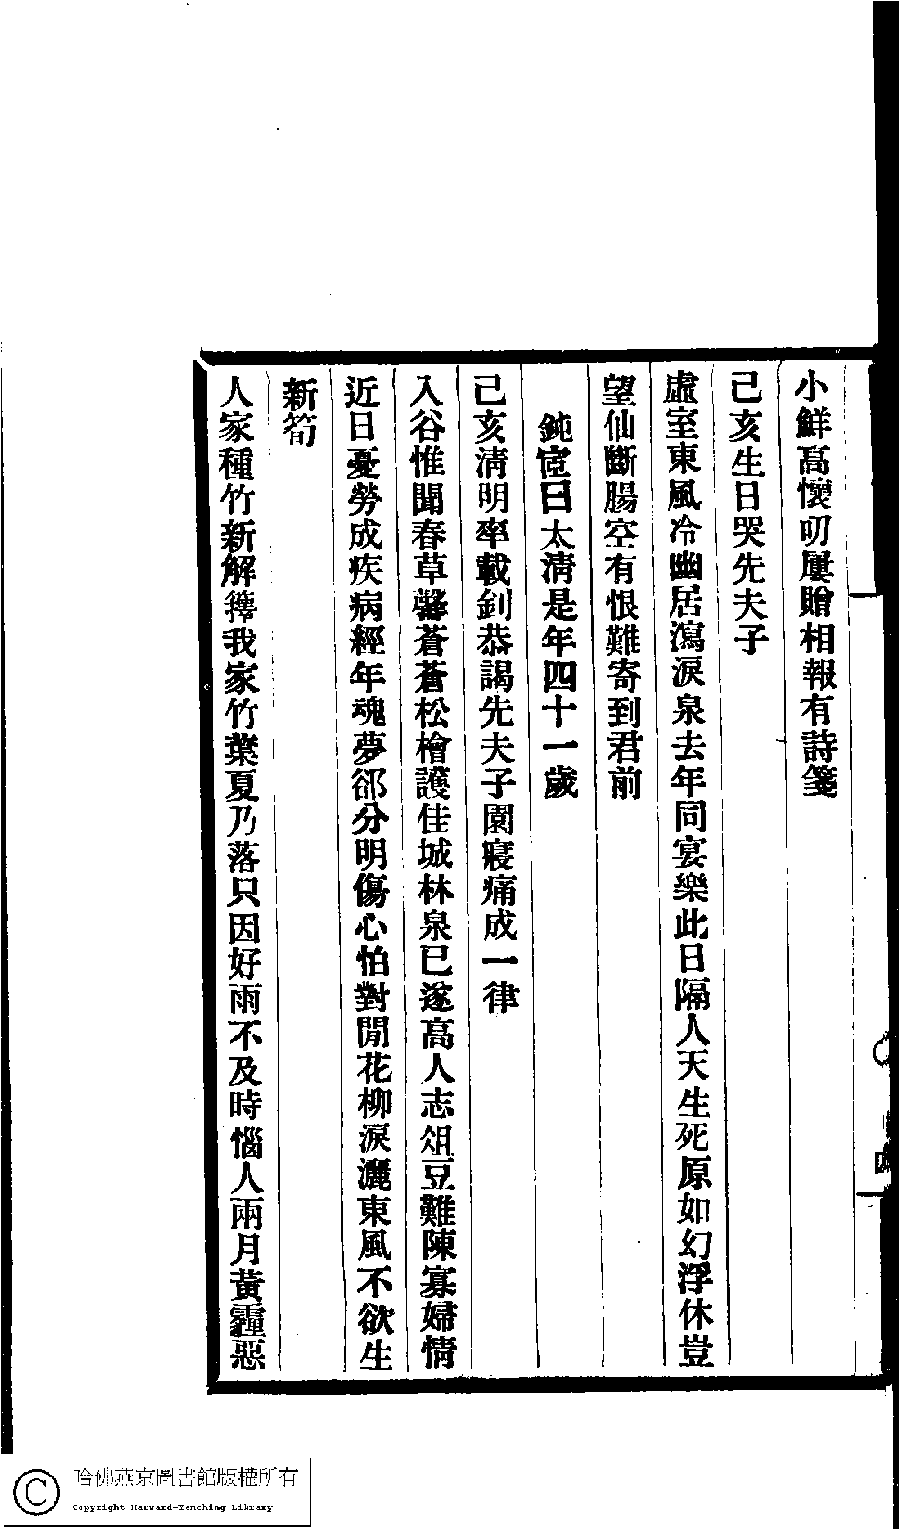 小鮮高懷叨屢贈相報有詩箋
己亥生日哭先夫子
虛室東風冷幽居瀉淚泉去年同宴樂此日隔人天生死原如幻浮休豈
望仙斷腸空有恨難寄到君前
鈍宧曰太清是年四十一歲
己亥清明率載釗恭謁先夫子園寢痛成一律
入谷惟聞春草馨蒼蒼松檜護佳城林泉已遂高人志俎豆難陳寡婦情
近日憂勞成疾病經年魂夢郤分明傷心怕對閒花柳淚灑東風不欲生
新筍
人家種竹新解籜我家竹葉夏乃落只因好雨不及時惱人兩月黃霾惡
哈佛燕京圖書館版權所有
Copyright Harvard-Yenching Library